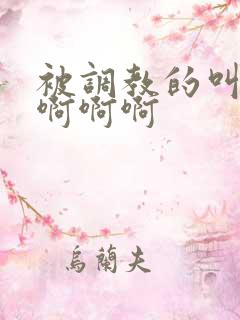 被調教的叫
啊啊啊
烏蘭夫